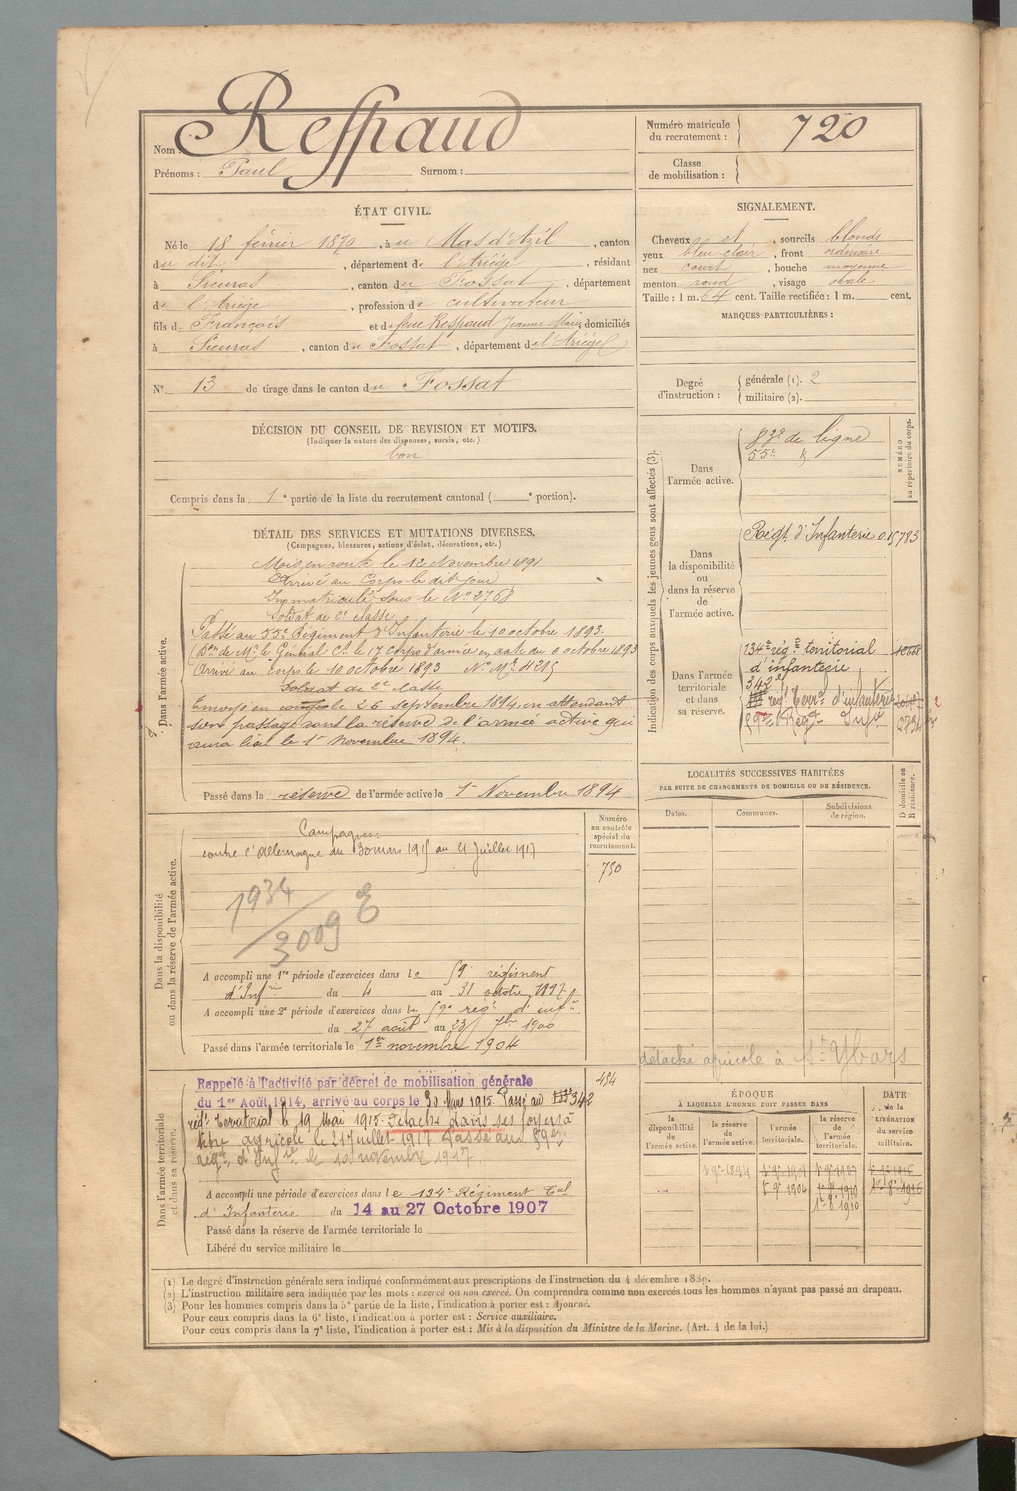 Nom : Respaud
Prénoms : Paul Surnom :
Numéro matricule du recrutement : 720
Classe de mobilisation :
ÉTAT CIVIL.
Né le 18 février 1870, à u Mas d'Azil, canton
du dit, département de l'Ariège, résidant
à Sieuras, canton du Fossat, département
de l'Ariège, profession de cultivateur
fils de François et de feue Respaud Jeanne Marie, domiciliés
à Sieuras, canton du Fossat, département de l'Ariège
N° 13 de tirage dans le canton du Fossat
SIGNALEMENT.
Cheveux et, sourcils blonds
yeux bleu clair, front ordinaire
nez court, bouche moyenne
menton rond, visage ovale
Taille : 1 m. 64 cent. Taille rectifiée : 1 m. cent.
MARQUES PARTICULIÈRES :
Degré d'instruction : générale (1). 2
militaire (2).
DÉCISION DU CONSEIL DE REVISION ET MOTIFS.
(Indiquer la nature des dispenses, sursis, etc.)
bon
Compris dans la 1e partie de la liste du recrutement cantonal ( e portion).
DÉTAIL DES SERVICES ET MUTATIONS DIVERSES.
(Campagnes, blessures, actions d'éclat, décorations, etc.)
Dans l'armée active.
Mois en route le 12 Novembre 1891
Arrivé au Corps le dit jour
Immatriculé sous le N° 2768
Soldat de 2e classe
Passé au 55e Régiment d'Infanterie le 10 octobre 1893.
(Don de Mr le Général Ct le 17 Corps d'armée en date du octobre 1893
Arrivé au Corps le 10 octobre 1893 N° Mle 4215
Soldat de 2e classe
Envoyé en congé le 26 septembre 1894, en attendant
son passage dans la réserve de l'armée active qui
aura lieu le 1er Novembre 1894.
Passé dans la réserve de l'armée active le 1er Novembre 1894
Indication des corps auxquels les jeunes gens sont affectés (3).
NUMÉRO au répertoire du corps.
Dans l'armée active.
83e de ligne
55e "
Dans la disponibilité ou dans la réserve de l'armée active.
Régt d'Infanterie 15783
Dans l'armée territoriale et dans sa réserve.
134e rég. territorial
d'infanterie
342e
régt Terral d'infanterie
59e Régt Infie 2734
LOCALITÉS SUCCESSIVES HABITÉES
PAR SUITE DE CHANGEMENTS DE DOMICILE OU DE RÉSIDENCE.
Dates. Communes. Subdivisions de région. D domicile ou R résidence.
détaché agricole à St Ybars
Dans la disponibilité ou dans la réserve de l'armée active.
Numéro au contrôle spécial du recrutement.
750
Campagnes :
contre l'Allemagne du 30 mars 1915 au 21 juillet 1917
1934
3009 E
A accompli une 1re période d'exercices dans le 59e régiment
d'Infie du 4 au 31 octobre 1897
A accompli une 2e période d'exercices dans le 59e régt d'infie
du 27 août au 23 7bre 1900
Passé dans l'armée territoriale le 1er novembre 1904
Dans l'armée territoriale et dans sa réserve.
454
Rappelé à l'activité par décret de mobilisation générale
du 1er Août 1914, arrivé au corps le 30 Mars 1915. Passé au 342
régt Territorial le 19 Mai 1915. Détaché dans ses foyers à
titre agricole le 21 Juillet 1917. Passé au 59e
régt d'Infie le 10 novembre 1917
A accompli une période d'exercices dans le 134e Régiment Tal
d'Infanterie du 14 au 27 Octobre 1907
Passé dans la réserve de l'armée territoriale le
Libéré du service militaire le
ÉPOQUE
À LAQUELLE L'HOMME DOIT PASSER DANS
la disponibilité de l'armée active. la réserve de l'armée active. l'armée territoriale. la réserve de l'armée territoriale.
DATE de la LIBÉRATION du service militaire.
1er 9e 1894
1er 9e 1904
1er 8e 1910
1er 8e 1916
(1) Le degré d'instruction générale sera indiqué conformément aux prescriptions de l'instruction du 4 décembre 1889.
(2) L'instruction militaire sera indiquée par les mots : exercé ou non exercé. On comprendra comme non exercés tous les hommes n'ayant pas passé au drapeau.
(3) Pour les hommes compris dans la 5e partie de la liste, l'indication à porter est : Ajourné.
Pour ceux compris dans la 6e liste, l'indication à porter est : Service auxiliaire.
Pour ceux compris dans la 7e liste, l'indication à porter est : Mis à la disposition du Ministre de la Marine. (Art. 4 de la loi.)